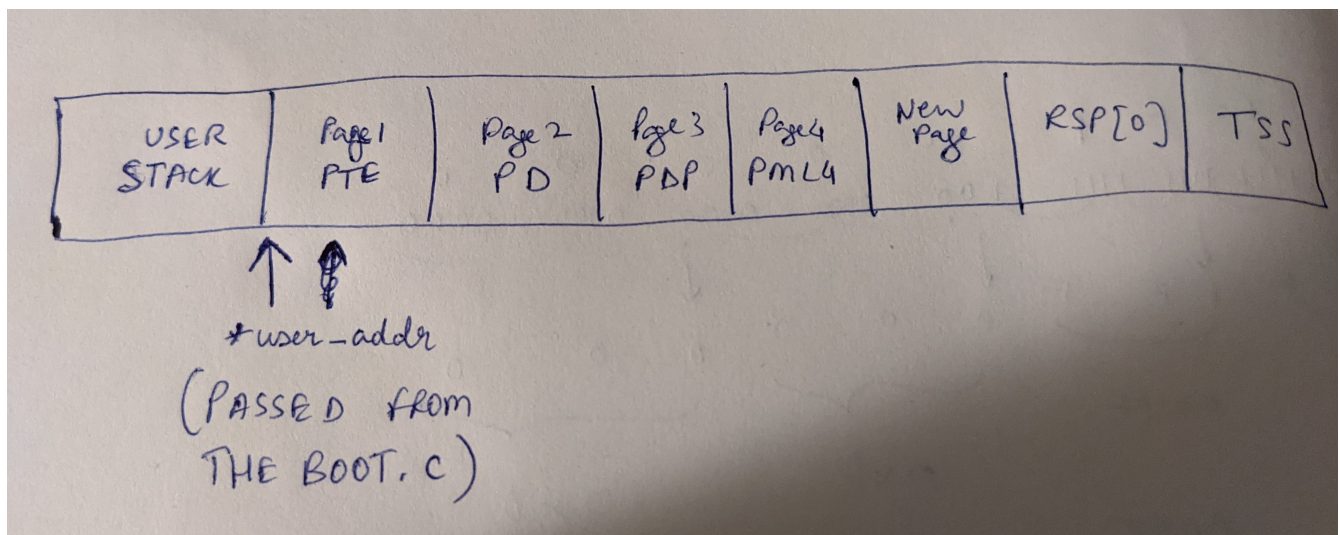 USER
STACK
Page1
PTE
Page 2
PD
Page 3
PDP
Page4
PML4
New
Page
RSP[0]
TSS
*user_addr
(PASSED FROM
THE BOOT.C)